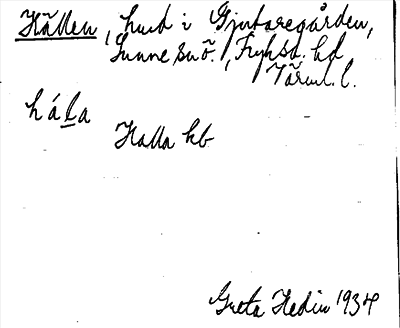 Hällen, hmd i Gjutaregården,
Sunne sn ö., Fryksd. hd
Värml. l.
hála
Halla kb
Greta Hedin 1934